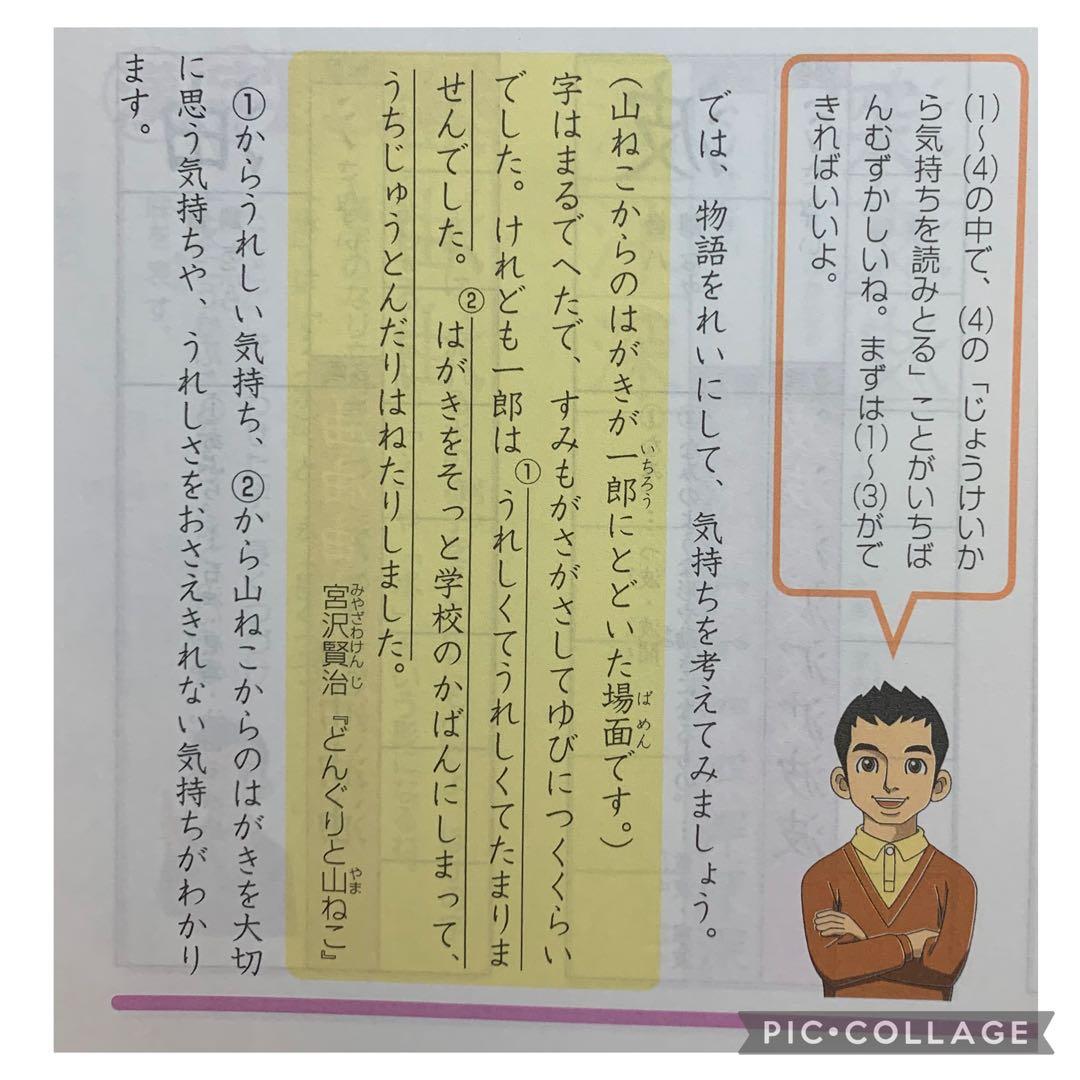 (1)～(4)の中で、(4)の「じょうけいか
ら気持ちを読みとる」ことがいちば
んむずかしいね。まずは(1)～(3)がで
きればいいよ。
では、物語をれいにして、気持ちを考えてみましょう。
(山ねこからのはがきが一郎にとどいた場面です。)
いちろう
ばめん
字はまるでへたで、すみもがさがさしてゆびにつくくらい
でした。けれども一郎は①うれしくてうれしくてたまりま
せんでした。②はがきをそっと学校のかばんにしまって、
うちじゅうとんだりはねたりしました。
宮沢賢治『どんぐりと山ねこ』
みやざわけんじ
やま
①からうれしい気持ち、②から山ねこからのはがきを大切
に思う気持ちや、うれしさをおさえきれない気持ちがわかり
ます。
PIC•COLLAGE